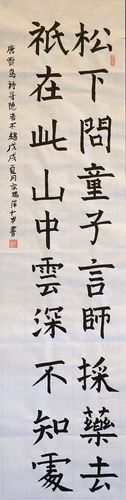 松下問童子言師採藥去
祇在此山中雲深不知處
唐賈島詩尋隱者不遇戊戌夏月